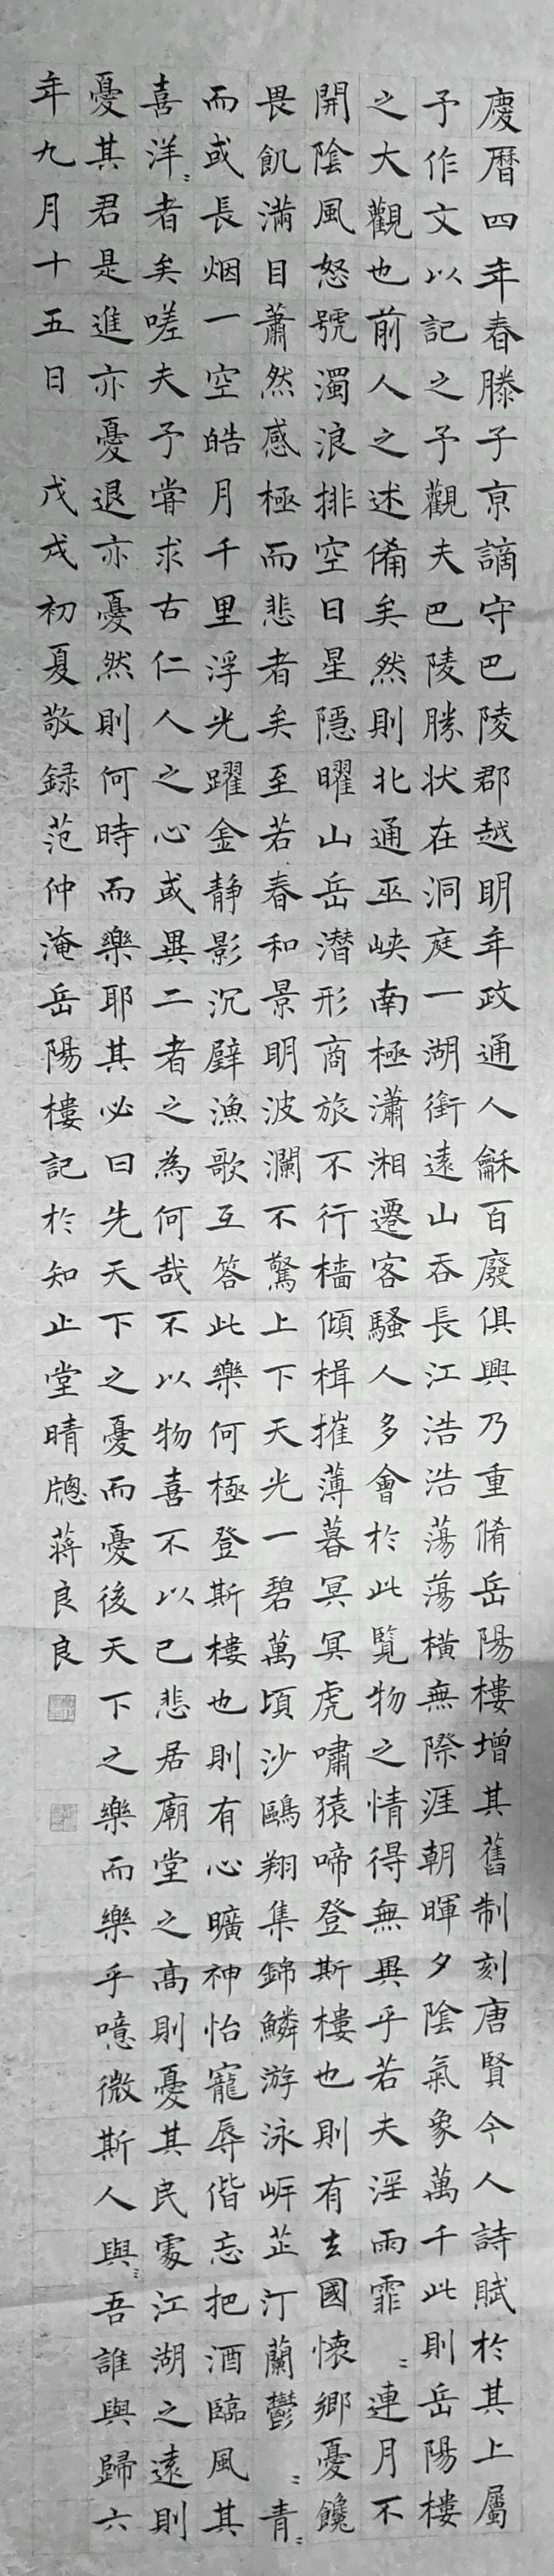 慶曆四年春滕子亰謫守巴陵郡越明年政通人龢百廢俱興乃重脩岳陽樓增其舊制刻唐賢今人詩賦於其上屬
予作文以記之予觀夫巴陵勝狀在洞庭一湖銜遠山吞長江浩浩蕩蕩橫無際涯朝暉夕陰氣象萬千此則岳陽樓
之大觀也前人之述備矣然則北通巫峽南極瀟湘遷客騷人多會於此覽物之情得無異乎若夫淫雨霏〻連月不
開陰風怒號濁浪排空日星隱曜山岳潛形商旅不行檣傾楫摧薄暮冥冥虎嘯猿啼登斯樓也則有去國懷鄉憂饞
畏飢滿目蕭然感極而悲者矣至若春和景明波瀾不驚上下天光一碧萬頃沙鷗翔集錦鱗游泳岸芷汀蘭鬱〻青〻
而或長烟一空皓月千里浮光躍金靜影沉璧漁歌互答此樂何極登斯樓也則有心曠神怡寵辱偕忘把酒臨風其
喜洋〻者矣嗟夫予嘗求古仁人之心或異二者之為何哉不以物喜不以己悲居廟堂之高則憂其民處江湖之遠則
憂其君是進亦憂退亦憂然則何時而樂耶其必曰先天下之憂而憂後天下之樂而樂乎噫微斯人與〻吾誰與歸六
年九月十五日 戊戌初夏敬録范仲淹岳陽樓記於知止堂晴牕蔣良良